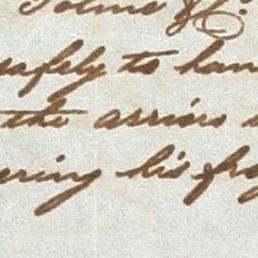 Tolmie
safely to han
the arriors
ering his fro